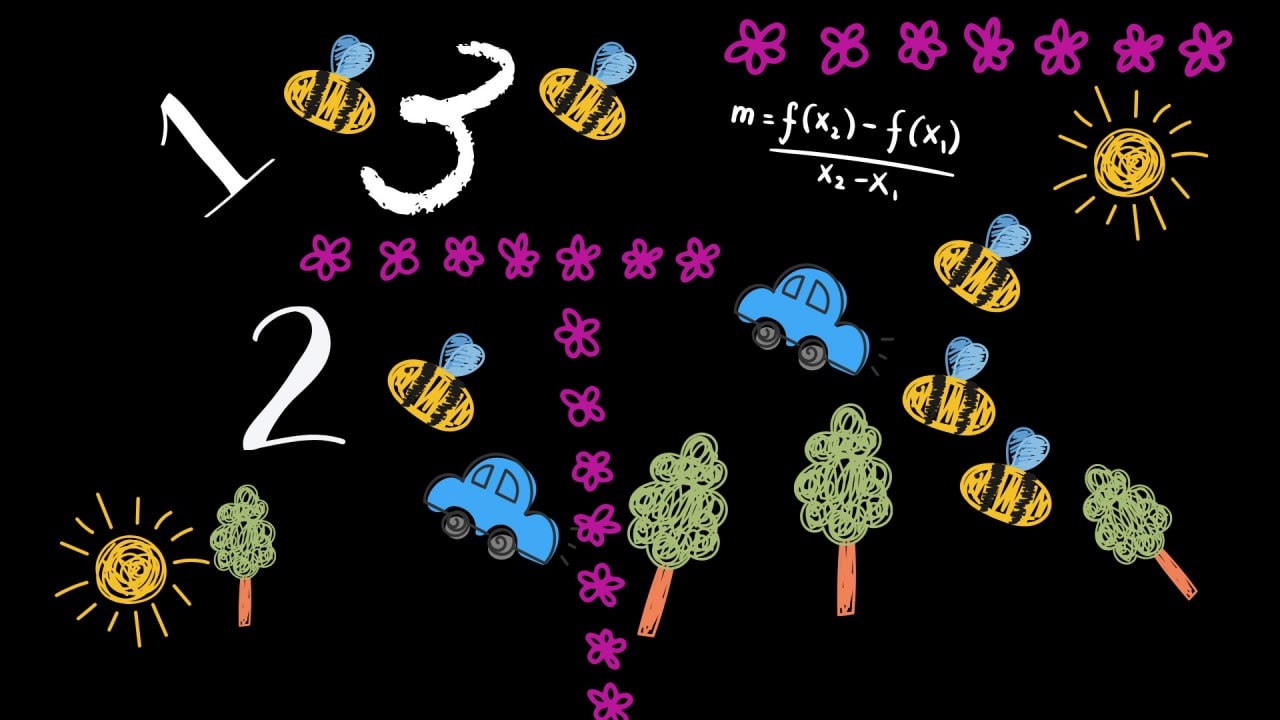 1 3
m = f(x₂) - f(x₁)
x₂ - x₁
2